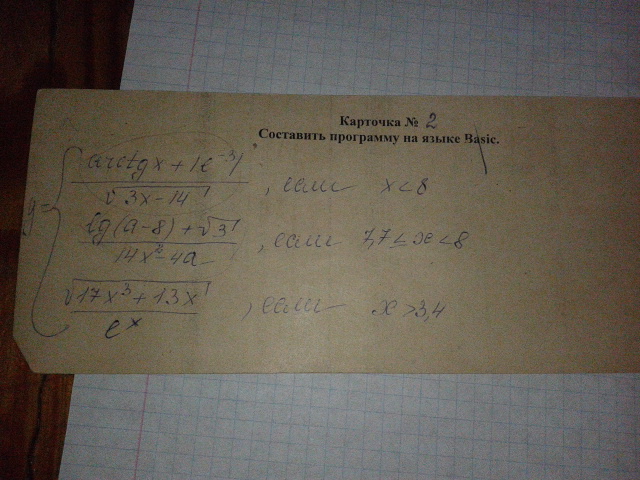 Карточка № 2
Составить программу на языке Basic.
y =
arctgx + |e⁻³|
√3x-14
, если x < 8
lg(a-8) + √3
14x²-4a
, если 7,7 ≤ x < 8
√17x³ + 13x
eˣ
, если x > 3,4